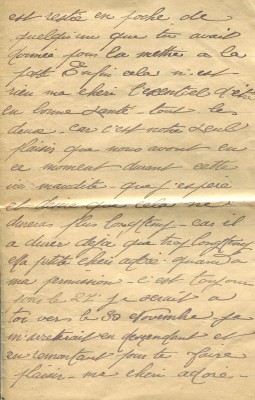 est restée en poche de
quelqu'un que tu avait
donnée pour la mettre a la
poste Enfin cela n'est
rien ma cheri l'essentiel d'être
en bonne santé - tout les
deux - car c'est notre seul
plaisir que nous avont en
ce moment durant cette
vie maudite - que j'espère
et que cela ne
durera plus longtemp - car il
a durer deja que trop longtemp
ma petite cheri adoré - quand a
ma permission - c'est toujour
vers le 27 - je serait a
toi vers le 30 Novembre je
m'arreterait en descendant et
en remontant pour te faire
plaisir - ma cheri adoré -